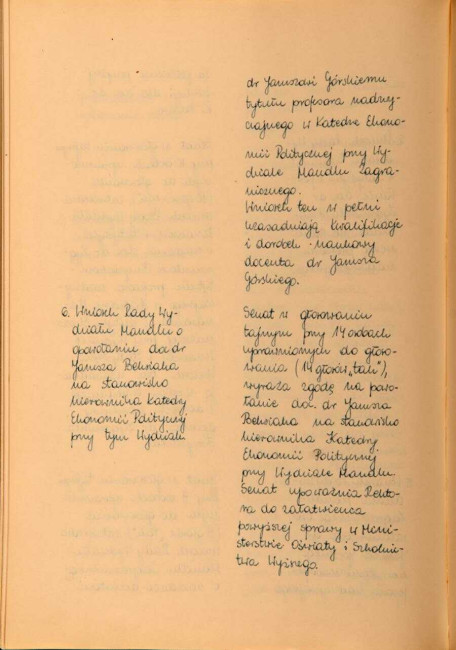 dr Januszowi Górskiemu
tytułu profesora nadzwy-
czajnego w Katedrze Ekono-
mii Politycznej przy Wy-
dziale Handlu Zagra-
nicznego.
Wniosek ten w pełni
uzasadniają kwalifikacje
i dorobek naukowy
docenta dr Janusza
Górskiego.
6. Wniosek Rady Wy-
działu Handlu o
powołaniu doc dr
Janusza
na stanowisko
kierownika Katedry
Ekonomii Politycznej
przy tym Wydziale.
Senat w głosowaniu
tajnym przy 14 osobach
uprawnionych do głoso-
wania (14 głosów „tak"),
wyraża zgodę na powo-
łanie doc. dr Janusza
na stanowisko
kierownika Katedry
Ekonomii Politycznej
przy Wydziale Handlu.
Senat upoważnia Rekto-
ra do załatwienia
powyższej sprawy w Mini-
sterstwie Oświaty i Szkolnic-
twa Wyższego.